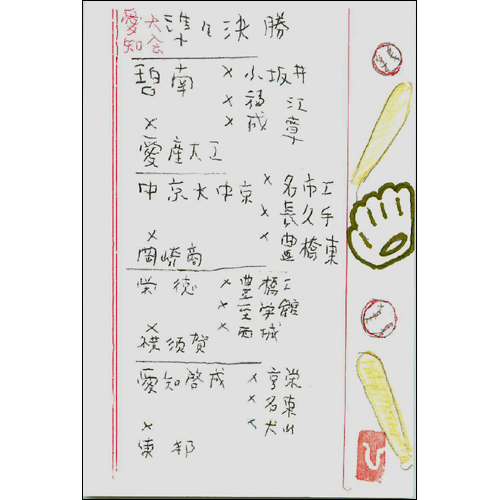 愛知大会 準々決勝
碧南 × 小坂井
× 福江
× × 成章
愛産大工
中京大中京 × 名市工
× 長久手
× × 豊橋東
岡崎商
栄徳 × 豊橋工
× 至学館
× × 西城
横須賀
愛知啓成 × 享栄
× 名東
× × 犬山
東邦
ひ